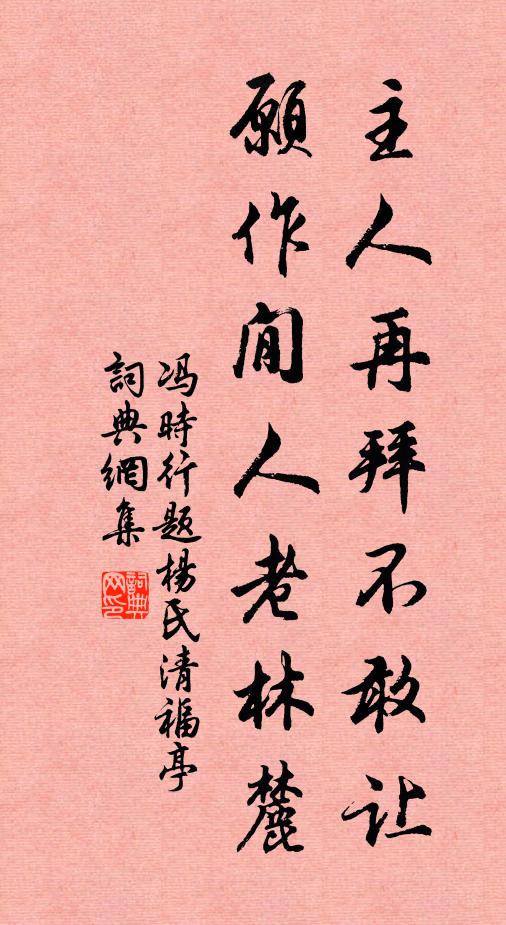 主人再拜不敢让
願作閒人老林麓
冯時行题楊氏清福亭
詞典網集
詞典网印